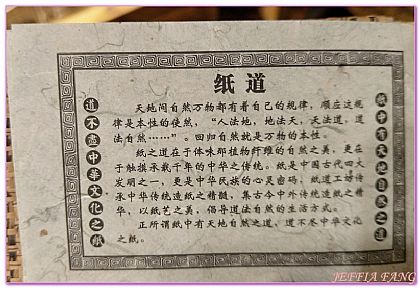 纸道
道不尽中华文化之纸
天地间自然万物都有着自己的规律，顺应这规
律是本性的使然，“人法地，地法天，天法道，道
法自然……”。回归自然就是万物的本性。
纸之道在于体味那植物纤维的自然之美，更在
于触摸承载千年的中华之传统。纸是中国古代四大
发明之一，更是中华民族的心灵密码，纸道工坊传
承中华传统造纸之精髓，集古今中外传统造纸之精
华，以纸艺之美，倡导道法自然的生活方式。
正所谓纸中有天地自然之道，道不尽中华文化
之纸。
纸中有天地自然之道
JEFFIA FANG